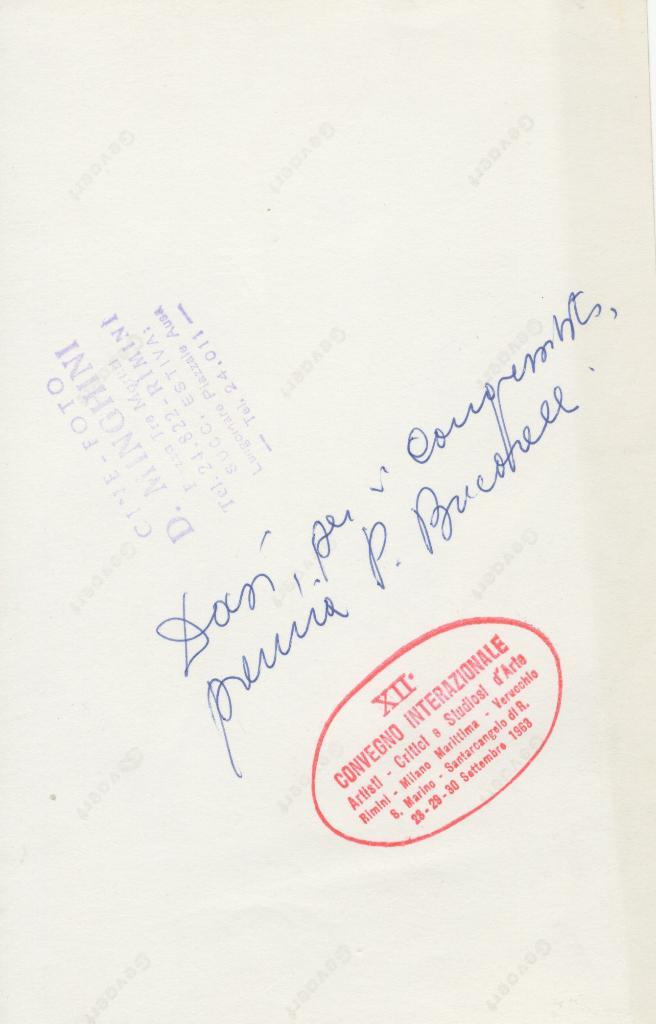 CINE-FOTO
D. MINGHINI
Tre Martiri
Tel. 24-822 - RIMINI
SUCC. ESTIVA:
Lungomare Piazzale Ausa
— Tel. 24.011 —
Dasi, per i Congressisti,
premia P. Bucarelli.
XII°
CONVEGNO INTERAZIONALE
Artisti - Critici e Studiosi d'Arte
Rimini - Milano Marittima - Verucchio
S. Marino - Santarcangelo di R.
28-29-30 Settembre 1963
Gevaert
Gevaert
Gevaert
Gevaert
Gevaert
Gevaert
Gevaert
Gevaert
Gevaert
Gevaert
Gevaert